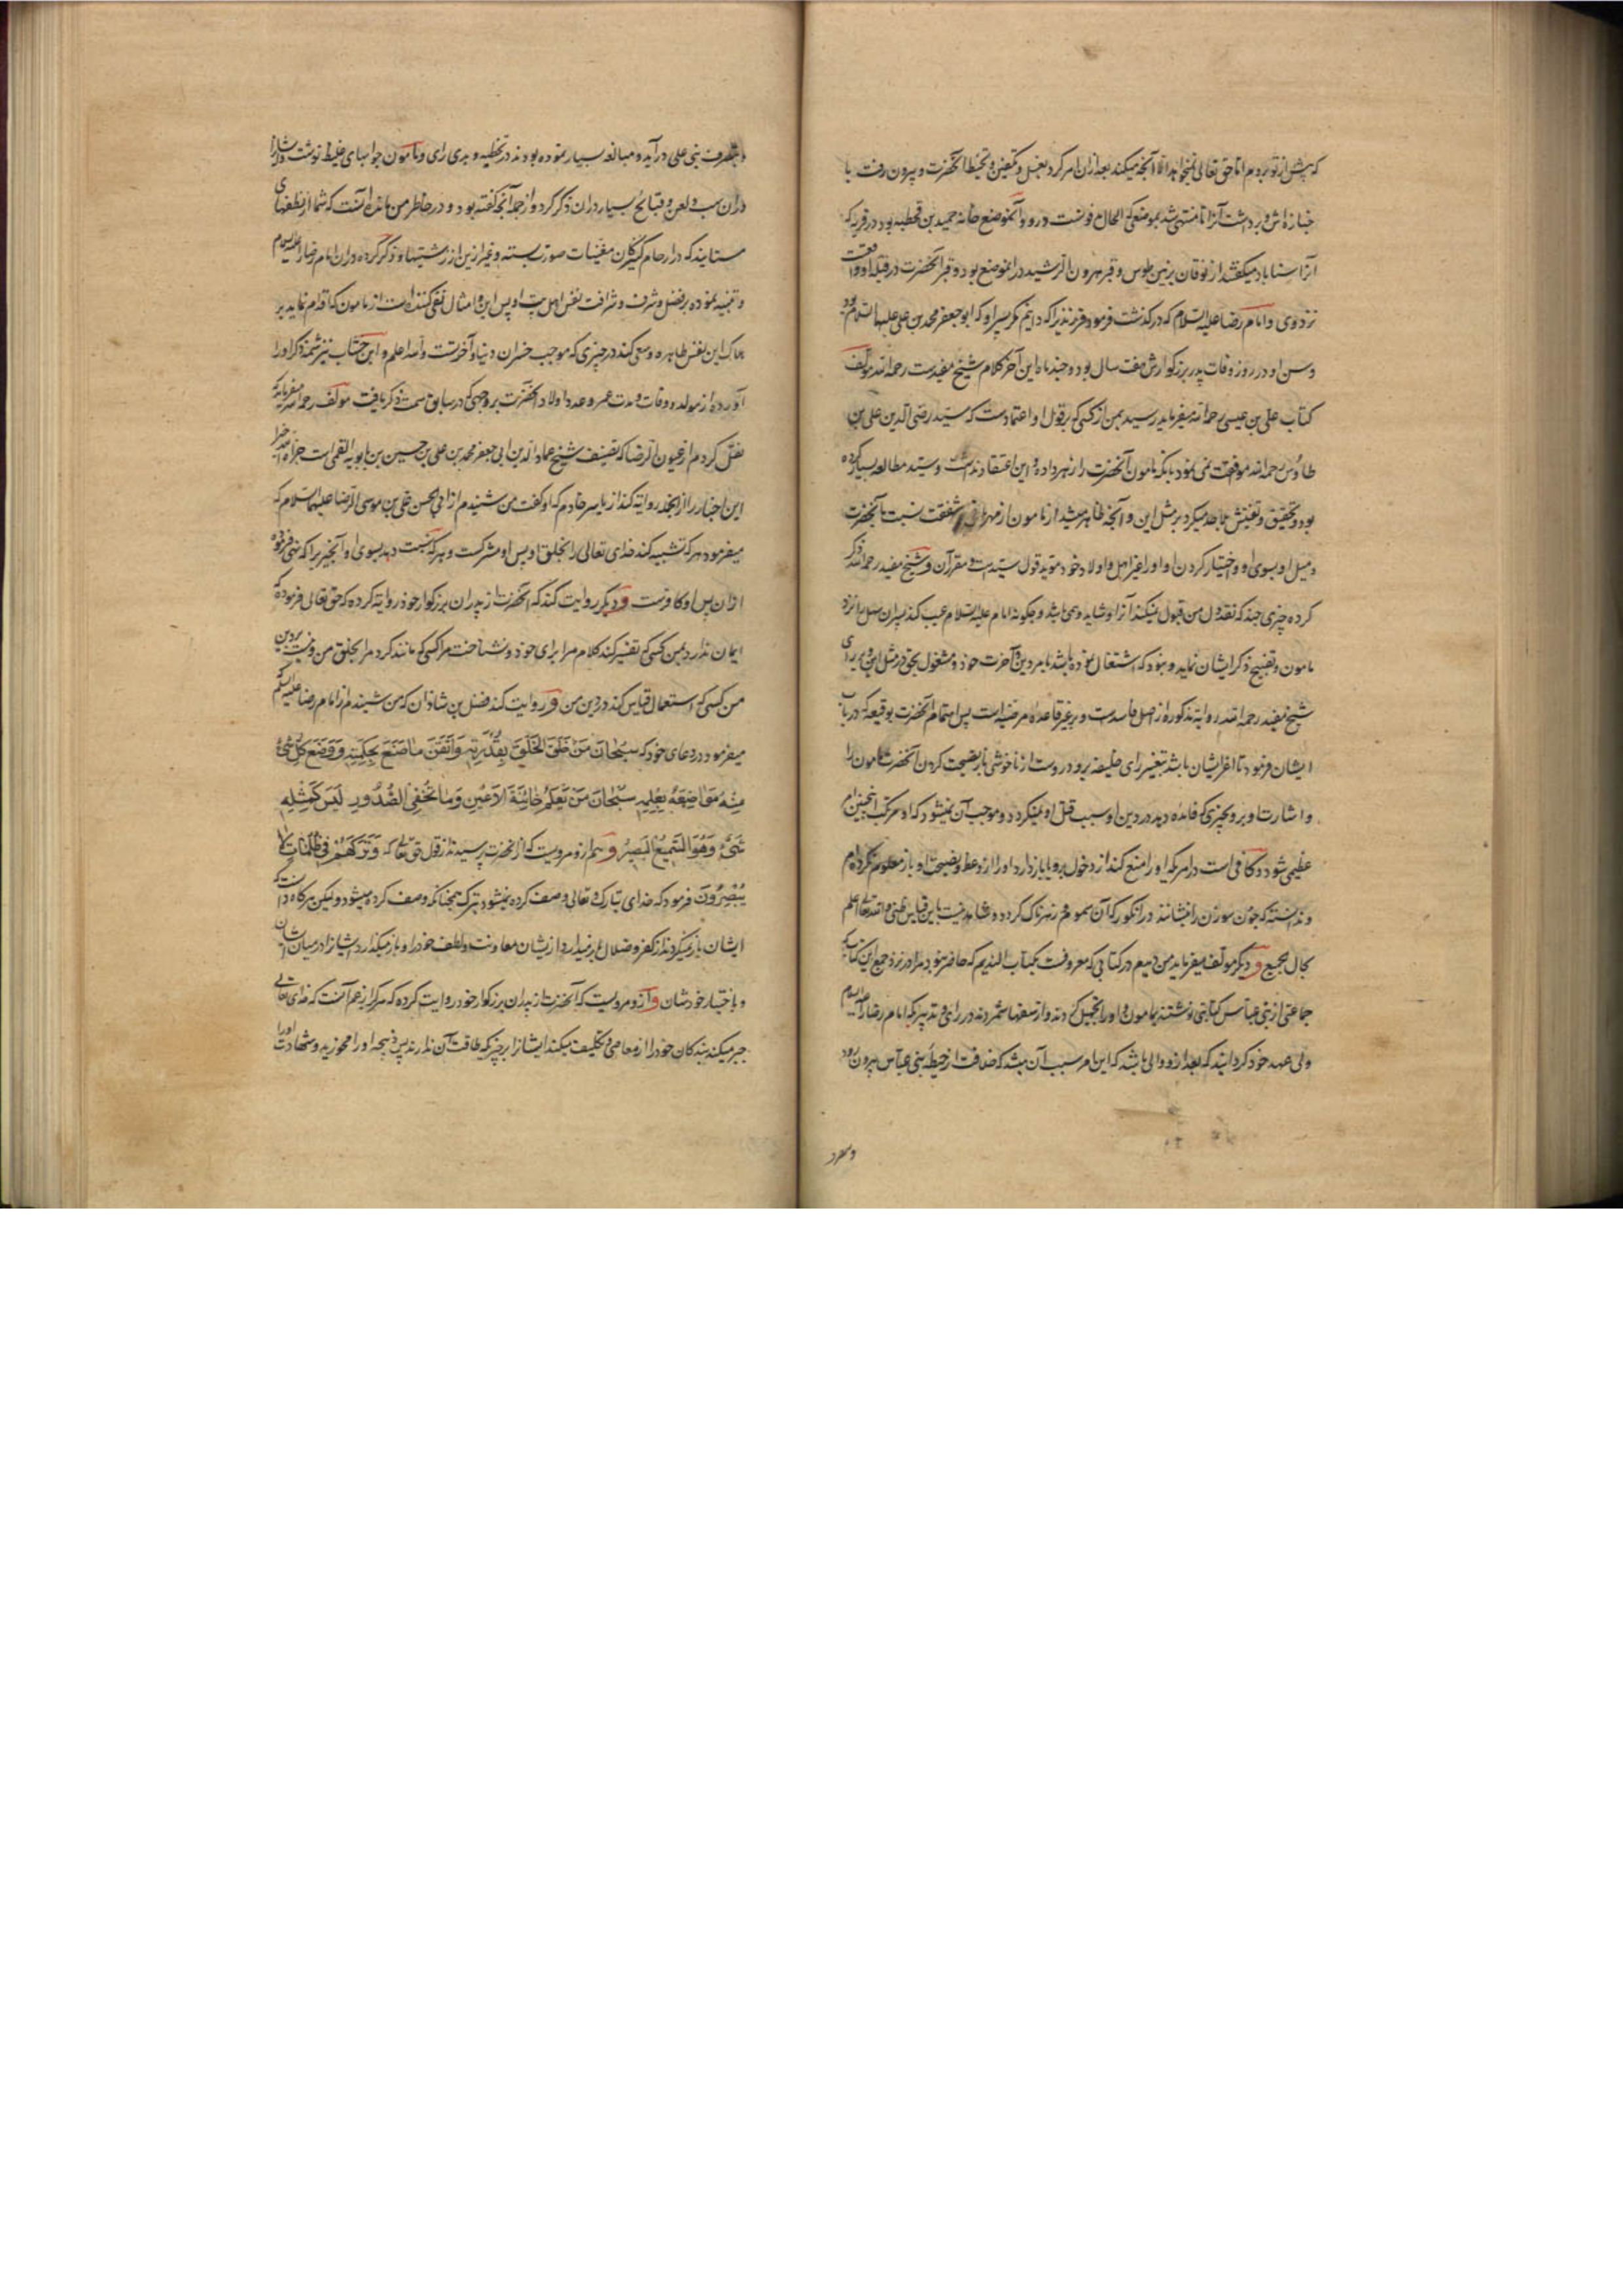 که پیش از تو بودم اما حق تعالی نمیخواهد الا آنچه میکند بعد ازان امر کرد بغسل و تکفین و تحنیط آنحضرت و بیرون رفت با
جنازه‌اش و برداشت آنرا تا منتهی شد بموضعی که الحال مدفونست درو و آنموضع خانه حمید بن قحطبه بود در قریه که
آنرا سناباد میگفتند از نوقان بزمین طوس و قبر هرون الرشید در آنموضع بود و قبر آنحضرت در قبله او واقعست
نزد وی و امام رضا علیه السلام که درگذشت فرمود فرزندیرا که دانیم مگر پسر او که ابو جعفر محمد بن علی علیهما السلام بود
و سن او در روز وفات پدر بزرگوارش هفت سال بود و چند ماه این آخر کلام شیخ مفیدست رحمه الله مولف
کتاب علی بن عیسی رحمه الله میفرماید رسید بمن از کسی که بر قول او اعتمادست که سید رضی الدین علی بن
طاوس رحمه الله موافقت نمی نمود بانکه مامون آنحضرت را زهر داده و این اعتقاد نداشت و سید مطالعه بسیار کرده
بود و تحقیق و تفتیش بجد میکرد بر مثل این و آنچه ظاهر میشد از مامون از مهربانی و شفقت نسبت بآنحضرت
و میل او بسوی او و اختیار کردن او او را بغیر اهل و اولاد خود موید قول سیدست و مقرر آن و شیخ مفید رحمه الله ذکر
کرده چیزی چند که نقد دل من قبول نمیکند آنرا و شاید وهمی باشد و چگونه امام علیه السلام عیب کند پسران سهل را نزد
مامون و تقبیح ذکر ایشان نماید و نبود که اشتغال نموده باشد بامر دین و آخرت خود و مشغول بحق در مثل این و بر رای
شیخ مفید رحمه الله روایة مذکوره از اصل فاسدست و بر غیر قاعده مرضیه است پس اهتمام آنحضرت بوقیعه که در باب
ایشان فرمود تا اغرا ایشان باشد بتغییر رای خلیفه برو دروست از ناخوشی باز نصیحت کردن آنحضرت مامون را
و اشارت او برو بچیزی که فائده دهد در دین او سبب قتل او نمیگردد و موجب آن نمیشود که او مرتکب اینچنین امر
عظیمی شود و کافی است در امر که او را منع کند از دخول برو یا باز دارد او را از وعظ و نصیحت او باز معلوم نکرده ام
و ندانسته که چون سوزن را بنشانند در انگور که آن مسموم و زهرناک گردد و شاهد نیست باین قیاس طبی و الله تعالی اعلم
بحال جمیع و دیگر مولف میفرماید من دیدم در کتابی که معروفست بکتاب الندیم که حاضر نبود مرا در نزد جمع این کتاب که
جماعتی از بنی عباس کتابتی نوشتند بمامون و او را تجهیل کردند و از سفها شمردند در رای و تدبیر که امام رضا را علیه السلام
ولی عهد خود گردانید که بعد ازو والی باشد که این امر سبب آن میشد که خلافت از حیطه بنی عباس بیرون رود
و بطرف
و بطرف بنی علی درآید و مبالغه بسیار نموده بودند در تخطیه و بدی رای و مامون جوابهای غلیظ نوشت ایشانرا و
دران سب و لعن و قبایح بسیار دران ذکر کرد و از جمله آنچه گفته بود و در خاطر من مانده اینست که شما از نطفهای
مستانید که در ارحام کنیزکان مغنیات صورت بسته و غیر ازین از زشتیها و ذکر کرده دران امام رضا را علیه السلام
و تنبیه نموده بر فضل و شرف و شرافت نفس اهل بیت او پس این و امثال نفی کننده است از مامون که اقدام نماید بر
هلاک این نفس طاهره و سعی کند در چیزی که موجب خسران دنیا و آخرتست والله اعلم و ابن خشاب نیز شمه ذکر او را
آورده از مولد و وفات و مدت عمر و عدد اولاد آنحضرت بر وجهی که در سابق سمت ذکر یافت مولف رحمه الله میفرماید که
نقل کردم از عیون الرضا که تصنیف شیخ عماد الدین ابی جعفر محمد بن علی بن حسین بن بابویه القمی است جزاه الله خیرا
این اخبار را از آنجمله روایة کند از یاسر خادم که او گفت من شنیدم از ابی الحسن علی بن موسی الرضا علیهما السلام که
میفرمود هر که تشبیه کند خدای تعالی را بخلق او پس او مشرکست و هر که نسبت دهد بسوی او آنچیزیرا که نهی فرموده
ازان پس او کافرست و دیگر روایت کند که آنحضرت از پدران بزرگوار خود روایة کرده که حق تعالی فرموده که
ایمان ندارد بمن کسی که تفسیر کند کلام مرا برای خود و نشناخت مرا کسی که مانند کرد مرا بخلق من و نیست بر دین
من کسی که استعمال قیاس کند در دین من و روایت کند فضل بن شاذان که من شنیدم از امام رضا علیه السلام
میفرمود در دعای خود که سُبْحَانَ مَنْ خَلَقَ الْخَلْقَ بِقُدْرَتِهِ وَاَتْقَنَ مَا صَنَعَ بِحِکْمَتِهِ وَوَضَعَ کُلَّ شَیْءٍ
مِنْهُ مَوَاضِعَهُ بِعِلْمِهِ سُبْحَانَ مَنْ یَعْلَمُ خَائِنَةَ الْاَعْیُنِ وَمَا تُخْفِی الصُّدُورِ لَیْسَ کَمِثْلِهِ
شَیْءٌ وَهُوَ السَّمِیعُ الْبَصِیرُ و هم ازو مرویست که از آنحضرت پرسیدند از قول حق تعالی که وَتَرَکَهُمْ فِی ظُلُمَاتٍ لَا
یُبْصِرُونَ فرمود که خدای تبارک و تعالی وصف کرده نمیشود بترک همچنانکه وصف کرده میشود ولیکن هرگاه دانست که
ایشان باز نمیگردند از کفر و ضلال باز میدارد از ایشان معاونت و لطف خود را و باز میگذارد ایشانرا در میان ایشان
و باختیار خودشان و ازو مرویست که آنحضرت از پدران بزرگوار خود روایت کرده که هر که را زعم آنست که خدای تعالی
جبر میکند بندگان خود را از معاصی و تکلیف میکند ایشانرا بر چیزی که طاقت آن ندارند پس ذبیحه او را مخورید و شهادت او را